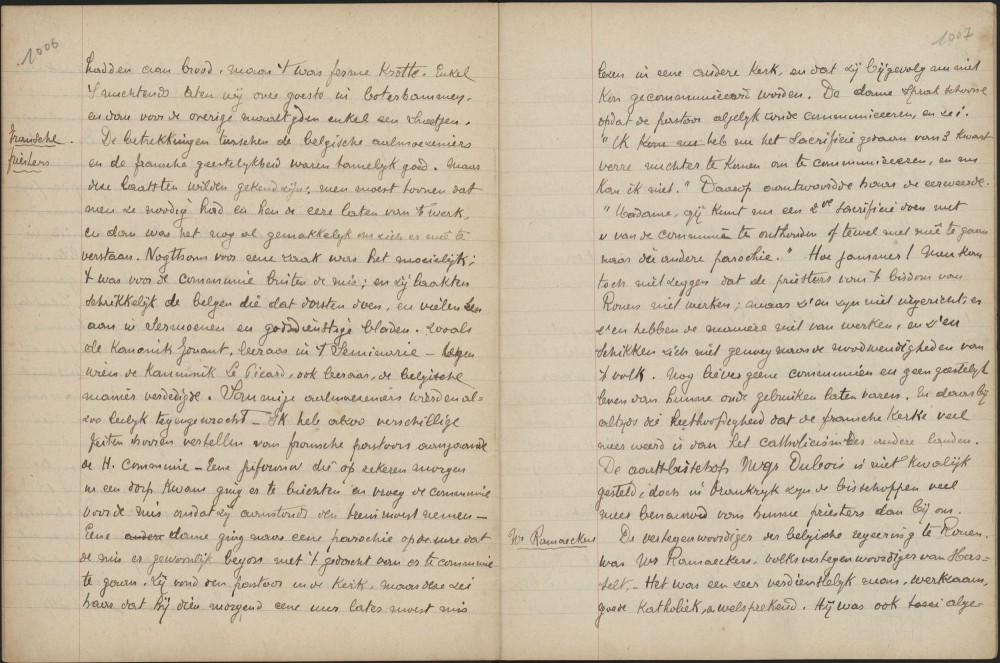 1006
hadden aan brood, maar 't was ferme Krotte. Enkel
's nuchtends laten wij onze goeste in boterhammen,
en dan voor de overige maaltijden enkel een sneetjen.
Fransche
priesters
De betrekkingen tusschen de belgische aalmoezeniers
en de fransche geestelijkheid waren tamelijk goed. Maar
deze laatsten wilden gekend zijn; men moest toonen dat
men ze noodig had en hen de eere laten van 't werk,
en dan was het nog al gemakkelijk om zich er meê te
verstaan. Nogthans voor eene zaak was het moeielijk;
't was voor de communie buiten de mis; en zij laakten
schrikkelijk de belgen die dat dorsten doen, en vielen hen
aan in sermoenen en godsdienstige bladen. Zooals
de Kanonik Jouant, leeraar in 't Seminarie –
wien de Kanunnik Le Picard, ook leeraar, de belgische
manier verdedigde. Sommige aalmoezeniers wierden al-
zoo leelijk tegengewrocht – Ik heb alzoo verschillige
feiten hooren vertellen van fransche pastoors aangaande
de H. Communie – Eene juffrouw die op zekeren morgen
in een dorp kwam ging er te biechten en vroeg de communie
voor de mis omdat zij aanstonds den trein moest nemen –
Eene andere dame ging naar eene parochie op de ure dat
de mis er gewoonlijk begon met 't gedacht van er te communie
te gaan. Zij vond den pastoor in de Kerk, maar deze zei
haar dat hij dien morgend eene uur later moest mis
1007
lezen in eene andere Kerk, en dat zij bijgevolg nu niet
Kon gecommuniceerd worden. De dame sprak schoone
opdat de pastoor algelijk zoude communiceeren, en zei:
"Ik Kom nu heb nu het Sacrificie gedaan van 3 Kwart
verre nuchter te komen om te communiceeren, en nu
Kan ik niet." Daarop antwoordde haar de eerweerde.
"Madame, gij kunt nu een 2de Sacrificie doen met
u van de communie te onthouden ofwel met meê te gaan
naar die andere parochie." Hoe jammer! Men kan
toch niet zeggen dat de priesters van 't bisdom van
Rouen niet werken; maar z'en zijn niet ingericht, en
z'en hebben de maniere niet van werken, en z'en
schikken zich niet genoeg naar de noodwendigheden van
't volk. Nog liever geene communien en geen geestelijk
leven dan hunne oude gebruiken laten varen. En daarbij
altijds die Keikhoofdigheid dat de fransche Kerke veel
meer weerd is dan het catholicism des andere landen.
De aartsbisschop Mgr Dubois is niet Kwalijk
gesteld; doch in Vrankrijk zijn de bisschoppen veel
meer benauwd van hunne priesters dan bij ons.
Mr Ramaeckers
De vertegenwoordiger der belgische regeering te Rouen.
was Mr Ramaeckers, volksvertegenwoordiger van Has-
selt. – Het was een zeer verdienstelijk man, werkzaam,
goede Katholiek, welsprekend. Hij was ook alge-